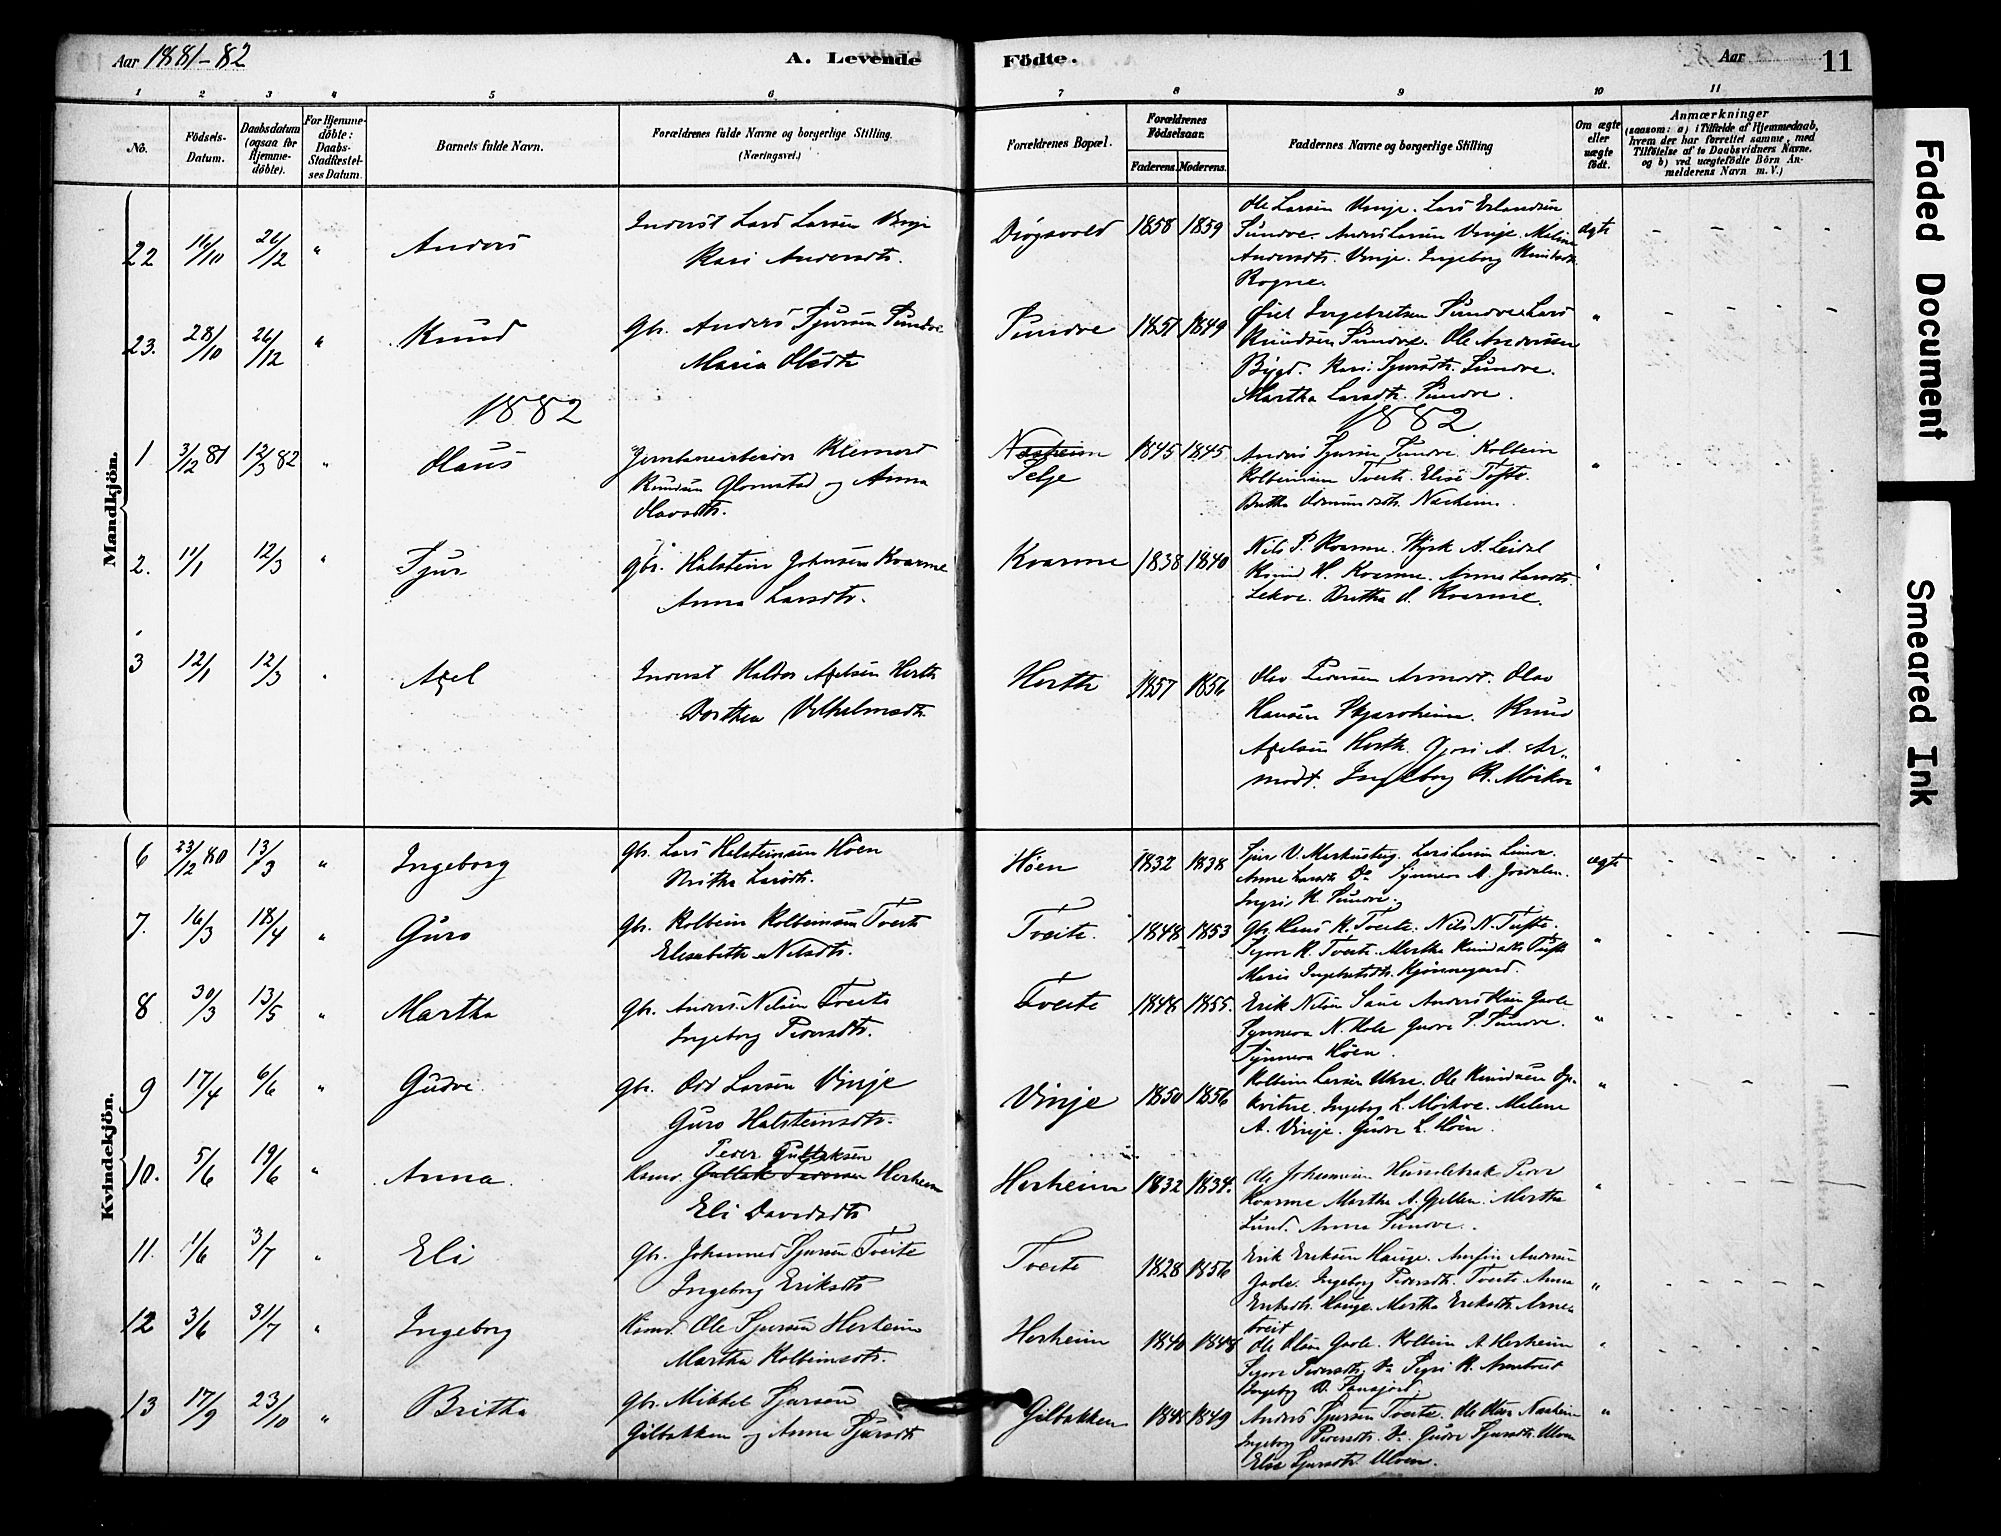 Aar 1881-82
A. Levende
Födte.
Aar
11
1 2 3 4 5 6 7 8 9 10 11
No.
Födsels-
Datum.
Daabsdatum
(ogsaa for
Hjemme-
döbte).
For Hjemme-
döbte:
Daabs-
Stadfæstel-
ses Datum.
Barnets fulde Navn.
Forældrenes fulde Navne og borgerlige Stilling.
(Næringsvei.)
Forældrenes Bopæl.
Forældrenes
Födselsaar.
Faderens. Moderens.
Faddernes Navne og borgerlige Stilling
Om ægte
eller
uægte
födt.
Anmærkninger
(saasom: a) i Tilfælde af Hjemmedaab,
hvem der har forrettet samme, med
Tilföielse af to Daabsvidners Navne.
og b) ved uægtefödte Börn An-
melderens Navn m. V.)
Mandkjön.
22 16/10 26/12 " Anders
Inderst Lars Larsen Vinje
Kari Andersdtr.
1858 1859
Ole Larsen Vinje. Lars Erlandsen
Sundve. Anders Larsen Vinje. Malene
Andersdtr. Vinje. Ingeborg Knutsdtr.
Rogne.
ægte
23. 28/10 26/12 " Knud
Gbr. Anders Sjursen Sundve
Maria Olsdtr
Sundve 1851 1849
Ingebretsen Sundve Lars
Knudsen Sundve. Ole Andersen
Bygd. Kari Sjursdtr. Sundve.
Martha Larsdtr. Sundve.
"
1882
1882
1 3/12 81 12/3 82 " Olaus
Klemet
Knudsen Glomstad og Anna
Olavsdtr.
Nasheim
Selje
1845 1845
Anders Sjursen Sundve. Kolbein
Kolbeinsen Tveite. Elise Tøfte.
Britha Nasheim.
"
2. 11/1 12/3 " Sjur
Gbr. Halstein Johnsen Kvarme
Anna Larsdtr.
Kvarme 1838 1840
Nils P. Kvarme. A.
Knud H. Kvarme. Anna Larsdtr.
Lekve. Britha O. Kvarme.
"
3 12/1 12/3 " Axel
Inderst Haldor Axelsen Herth
Dorthea Vilhelmsdtr.
Herth 1857 1856
Olav Pedersen Armodt. Olav
Hansen Skjerveheim. Knud
Axelsen Herth. A. Ar-
modt. Ingeborg K. Mörkve
"
Kvindekjön.
6 23/12 80 13/3 " Ingeborg
Gbr. Lars Halsteinsen Höen
Britha Larsdtr.
Höen 1832 1838
Sjur V. Markusteig. Lars
Anna Larsdtr Do Synneva A. Jordalen.
K. Sundve.
ægte
7. 16/3 18/4 " Guro
Gbr. Kolbein Kolbeinsen Tveite
Elisabeth Nilsdtr.
Tveite. 1848 1853
Gbr. Hans K. Tveite. Nils N. Tufte.
K. Tveite. Martha Knudsdtr Tufte
Maria Ingebretsdtr. Kjönnegard.
"
8 30/3 13/5 " Martha
Gbr. Anders Nilsen Tveite
Ingeborg Pedersdtr.
Tveite 1846 1855.
Erik Nilsen Saue Anders
Synneva N. Hole Gudve S. Sundve.
Synneva Höen.
"
9 17/4 6/6 " Gudve.
Gbr. Odd Larsen Vinje
Guro Halsteinsdtr.
Vinje 1850 1856
Kolbein Larsen Uhre. Ole Knudsen Op-
kvitne. Ingeborg L. Mörkve. Malene
A. Vinje. Gudve L. Höen.
"
10. 5/6 19/6 " Anna.
Peder Gullaksen
Gullak Pedersen Herheim
Eli Davidsdtr
Herheim 1832 1834.
Ole Johannesen Peder
Kvarme Martha A. Gjellen. Martha
Lund. Anna Sundve.
"
11. 1/6 3/7 " Eli
Gbr. Johannes Sjursen Tveite
Ingeborg Eriksdtr
Tveite 1828 1856
Erik Eriksen Hauge. Anfin Andersen
Gaole. Ingeborg Pedersdtr. Tveite. Anna
Eriksdtr. Hauge. Martha Eriksdtr. Arme-
tveit
"
12 3/6 31/7 " Ingeborg
Ole Sjursen Herheim
Martha Kolbeinsdtr.
Herheim 1840 1848
Ole Olsen Gaole. Kolbein A. Herheim
Pedersdtr. Do K. Armtveit
Ingeborg
"
13 17/9 23/10 " Britha
Gbr. Mikkel Sjursen
Gilbakken og Anna Sjursdtr
Gilbakken 1849
Anders Sjursen Tveite. Ole Olsen Nasheim
Ingeborg Pedersdtr. Do Gudve Sjursdtr. Ulven
Elise Sjursdtr. Ulven.
"
Faded Document
Smeared Ink